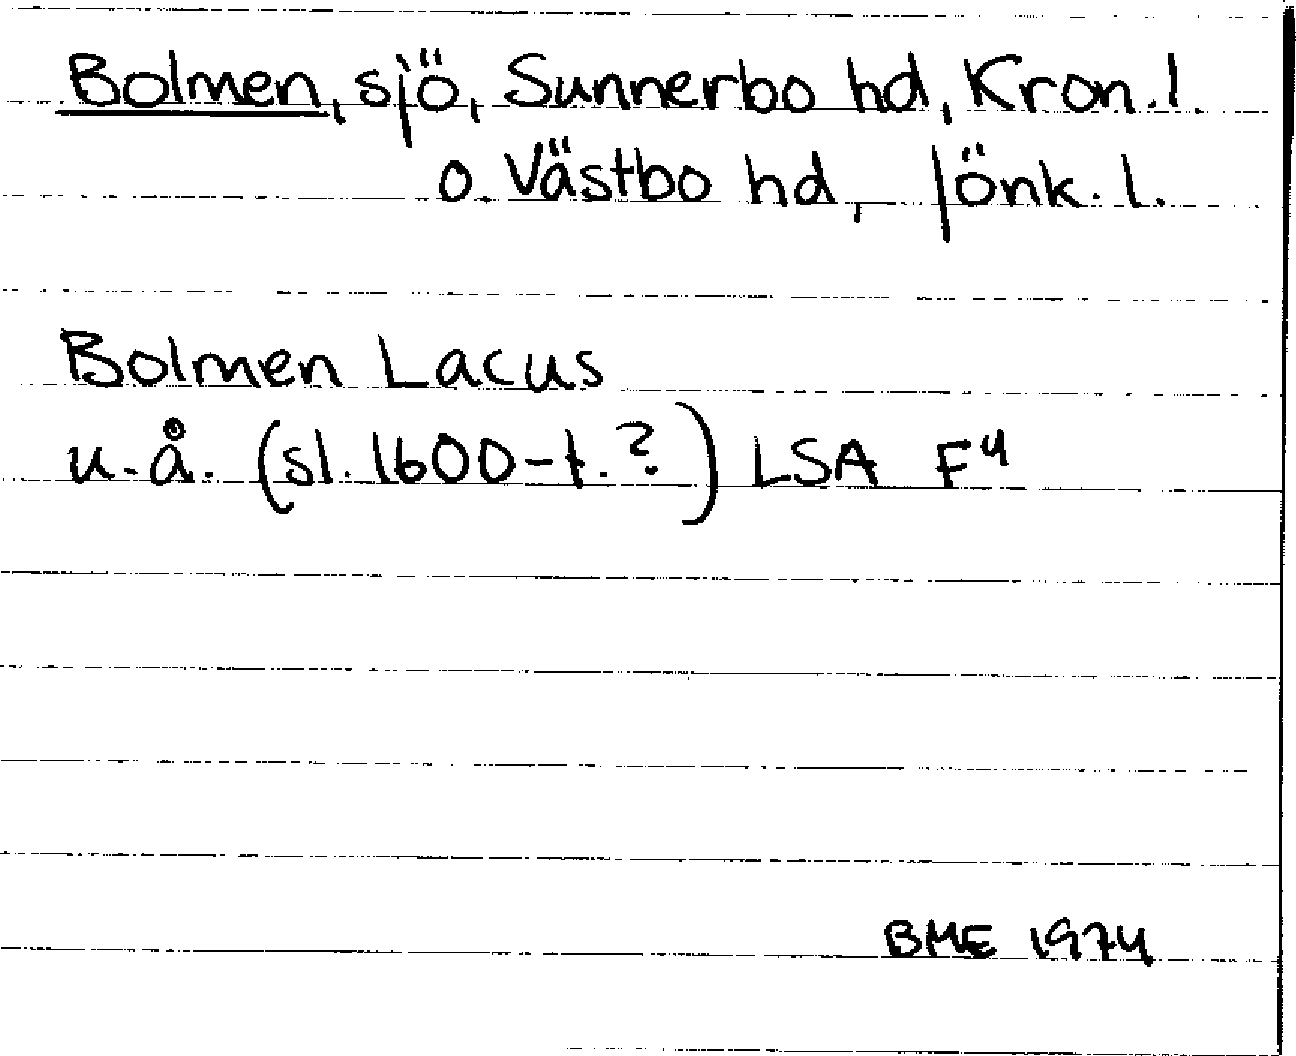 Bolmen, sjö, Sunnerbo hd, Kron.l.
o. Västbo hd, Jönk.l.
Bolmen Lacus
u.å. (sl. 1600-t.?) LSA F4
BME 1974